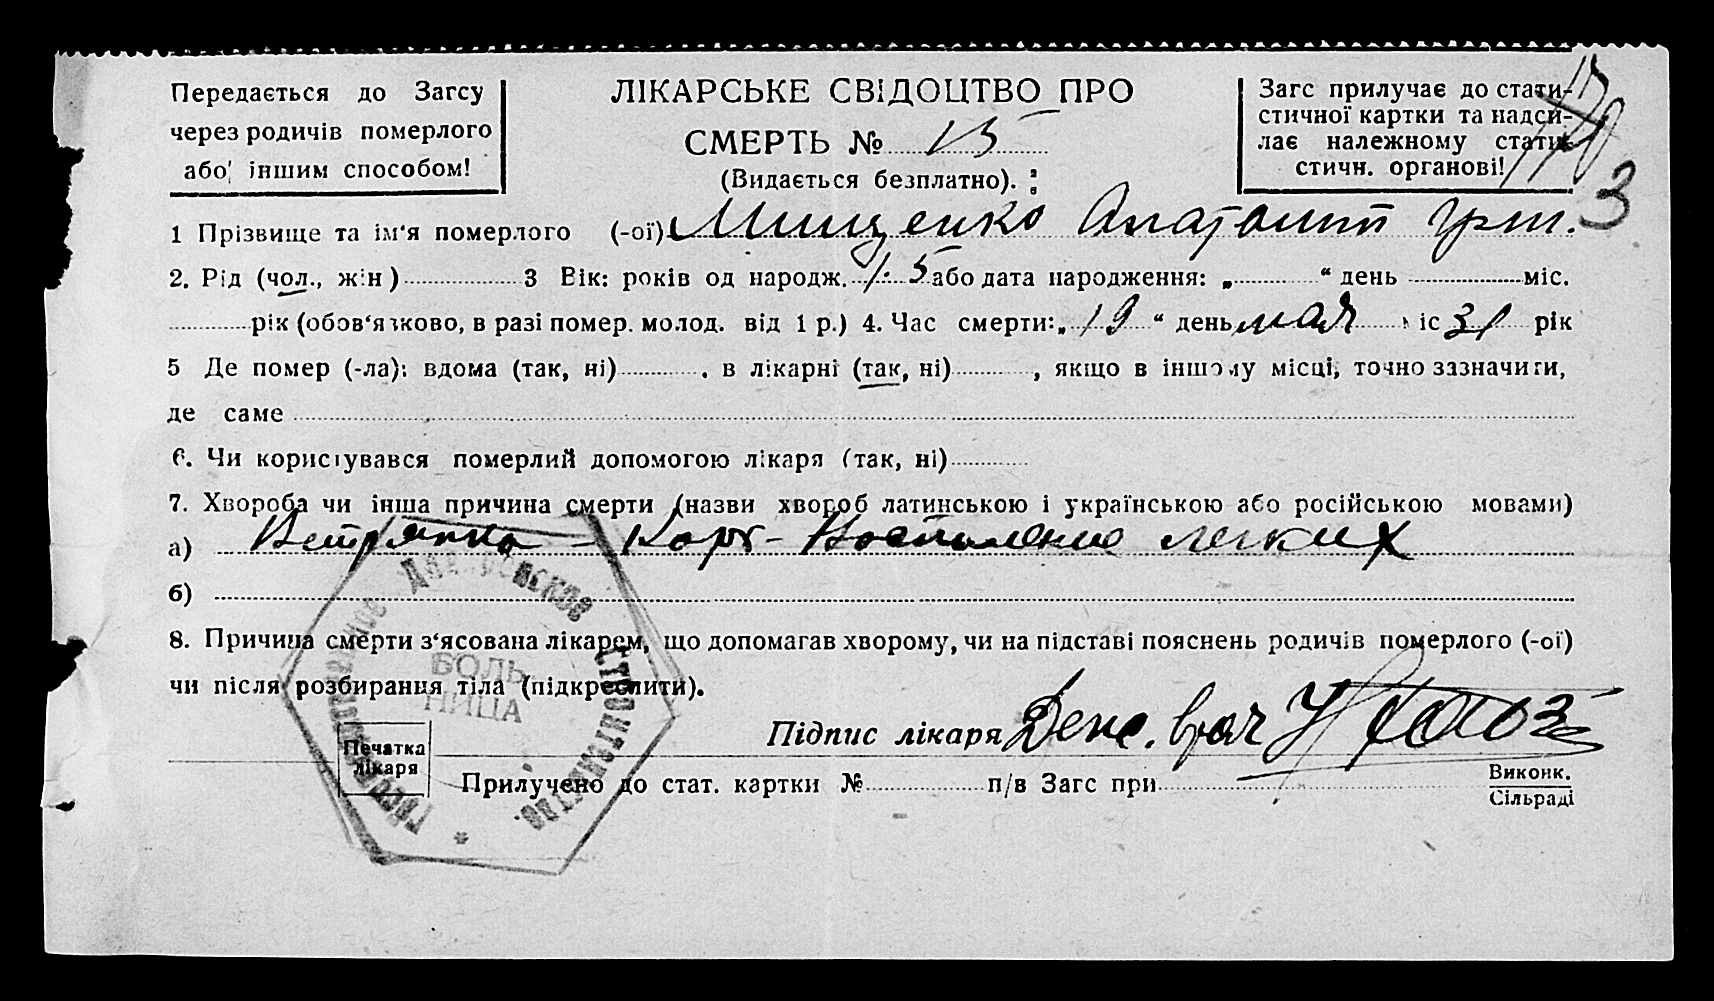 Передається до Загсу
через родичів померлого
або іншим способом!
ЛІКАРСЬКЕ СВІДОЦТВО ПРО
СМЕРТЬ № 15
(Видається безплатно).
Загс прилучає до стати-
стичної картки та надси-
лає належному стати-
стичн. органові!
3
1 Прізвище та ім'я померлого (-ої) Мищенко Анатолий Григ.
2. Рід (чол., жін) 3 Вік: років од народж. 1.5 або дата народження: „ “ день міс.
рік (обов'язково, в разі помер. молод. від 1 р.) 4. Час смерти: „ 19 “ день мая міс 31 рік
5 Де помер (-ла): вдома (так, ні) . в лікарні (так, ні) , якщо в іншому місці, точно зазначити,
де саме
6. Чи користувався померлий допомогою лікаря (так, ні)
7. Хвороба чи інша причина смерти (назви хвороб латинською і українською або російською мовами)
а) Ветрянка – Корь – Воспаление легких
б)
8. Причина смерти з'ясована лікарем, що допомагав хворому, чи на підставі пояснень родичів померлого (-ої)
чи після розбирання тіла (підкреслити).
Днепровское строительство
БОЛЬ-
НИЦА
Підпис лікаря Деж. врач
Печатка
лікаря
Прилучено до стат. картки № п/в Загс при Виконк.
Сільраді